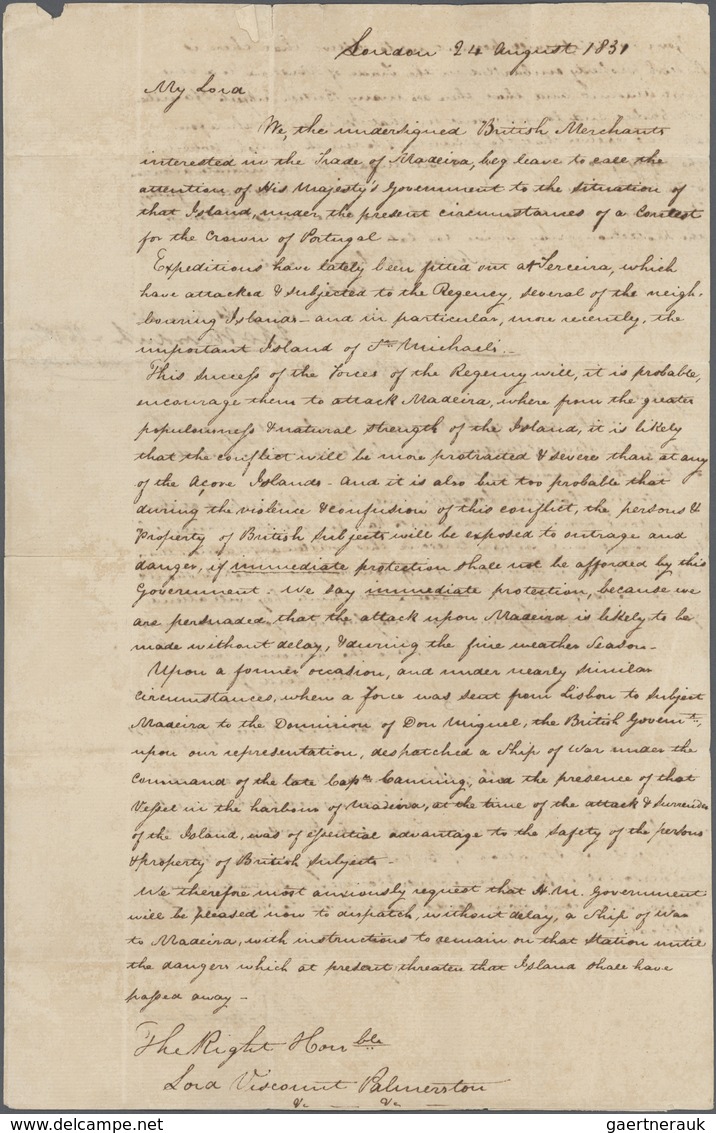 London 24 August 1831
My Lord
We, the undersigned British Merchants
interested in the Trade of Madeira, beg leave to call the
attention of His Majesty's Government to the situation of
that Island, under the present circumstances of a Contest
for the Crown of Portugal
Expeditions have lately been fitted out at Terceira, which
have attacked & subjected to the Regency, several of the neigh-
bouring Islands - and in particular, more recently, the
important Island of St. Michael's. -
This success of the Forces of the Regency will, it is probable,
encourage them to attack Madeira, where from the greater
populousness & natural strength of the Island, it is likely
that the conflict will be more protracted & severe than at any
of the Açore Islands - and it is also but too probable that
during the violence & confusion of this conflict, the persons &
Property of British Subjects will be exposed to outrage and
danger, if immediate protection shall not be afforded by this
Government. We say immediate protection, because we
are persuaded that the attack upon Madeira is likely to be
made without delay, & during the fine weather Season -
Upon a former occasion, and under nearly similar
circumstances, when a Force was sent from Lisbon to subject
Madeira to the Dominion of Don Miguel, the British Governmt.,
upon our representation, despatched a Ship of War under the
command of the late Captn. Canning, and the presence of that
Vessel in the harbour of Madeira, at the time of the attack & Surrender
of the Island, was of essential advantage to the safety of the persons
& property of British Subjects -
We therefore most anxiously request that H. M. Government
will be pleased now to dispatch, without delay, a Ship of War
to Madeira, with instructions to remain on that Station until
the dangers which at present threaten that Island shall have
passed away -
The Right Honble
Lord Viscount Palmerston
&c - &c -
gaertnerauk